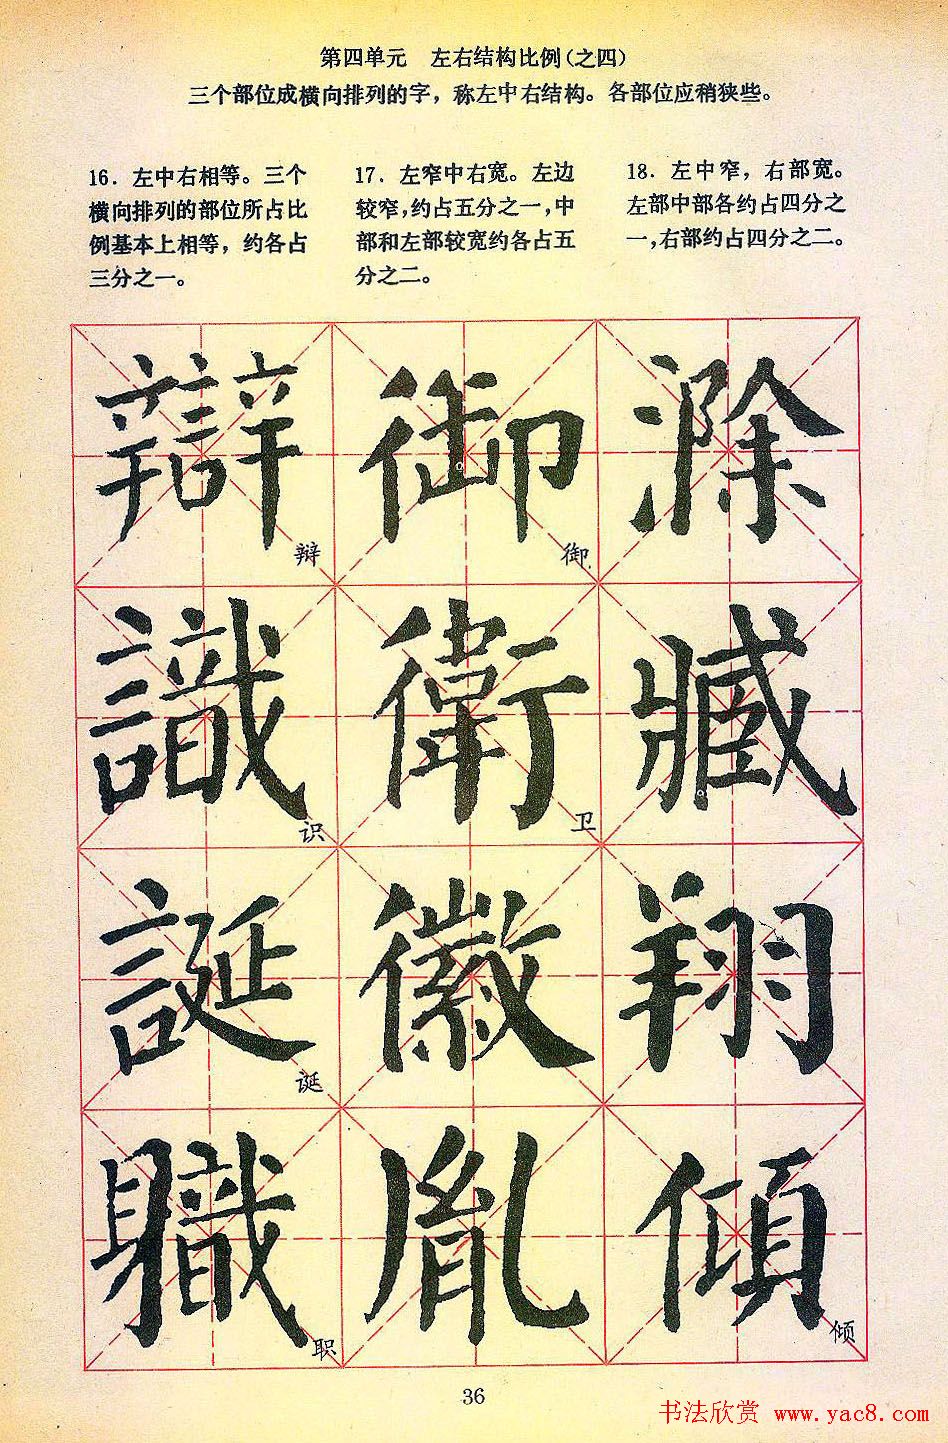 第四单元 左右结构比例(之四)
三个部位成横向排列的字，称左中右结构。各部位应稍狭些。
16. 左中右相等。三个
横向排列的部位所占比
例基本上相等，约各占
三分之一。
17. 左窄中右宽。左边
较窄，约占五分之一，中
部和左部较宽约各占五
分之二。
18. 左中窄，右部宽。
左部中部各约占四分之
一，右部约占四分之二。
辯 御 滁
辩 御
識 衛 臧
识 卫
誕 徽 翔
诞
職 胤 傾
职 倾
36
书法欣赏 www.yac8.com